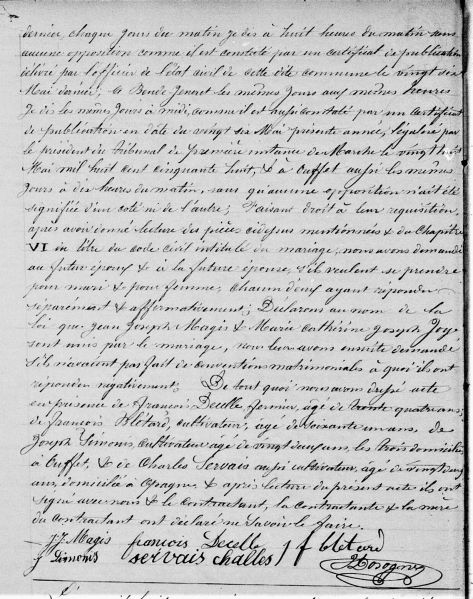 dernier, chaque jours du matin je dis à huit heures du matin sans
aucune opposition comme il est constaté par un certificat de publication
délivré par l'officier de l'état civil de cette dite commune le vingt six
Mai dernier, à Bonde les mêmes jours aux mêmes heures
je dis les mêmes jours à midi, comme il est aussi constaté par un certificat
de publication en date du vingt six Mai présente année, légalisé par
le président du tribunal de première instance de Marche le vingt huit
Mai mil huit cent cinquante huit, & à Ouffet aussi les mêmes
jours à dix heures du matin, sans qu'aucune opposition n'ait été
signifiée d'un coté ni de l'autre; Faisant droit à leur requisition,
après avoir donné lecture des pièces ci dessus mentionnées & du Chapitre
VI du titre du code civil intitulé du mariage, nous avons demandé
au futur époux & à la future épouse, s'ils veulent se prendre
pour mari & pour femme, chacun d'eux ayant répondu
séparément & affirmativement; Déclarons au nom de la
loi que jean Joseph Magis & Marie Catherine Joseph Joye
sont unis par le mariage, nous leur avons ensuite demandé
s'ils n'avaient pas fait de conventions matrimoniales à quoi ils ont
répondu négativement; De tout quoi nous avons dressé acte
en présence de François Decelle fermier, agé de trente quatre ans,
de françois Blétard, cultivateur, agé de soixante un ans, de
Joseph Simonis, cultivateur, agé de vingt deux ans, les trois domiciliés
à Ouffet, & de Charles Servais aussi cultivateur, agé de vingt deux
ans, domicilié à & après lecture du présent acte ils ont
signé avec nous & le contractant, la contractante & la mère
du contractant ont déclaré ne savoir le faire.
JJ Magis françois Decelle j f bletard
J Simonis servais challes